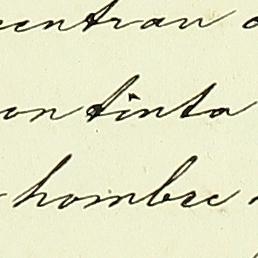 entran
on tinta
hombre